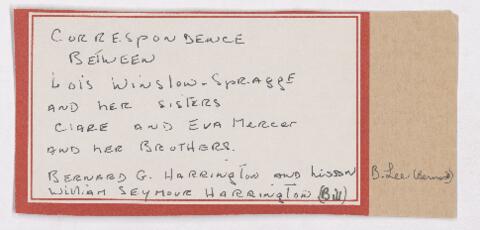 CORRESPONDENCE
BETWEEN
LOIS WINSLOW-SPRAGGE
AND HER SISTERS
CLARE AND EVA MERCER
AND HER BROTHERS.
BERNARD G. HARRINGTON AND
WILLIAM SEYMOUR HARRINGTON (Bill)
B. Lee (Bernard)